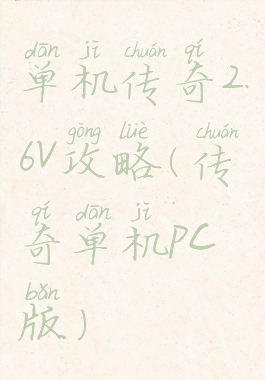 dān jī chuán qí
单机传奇2.
gōng lüè chuán
6V攻略(传
qí dān jī
奇单机PC
bǎn
版)